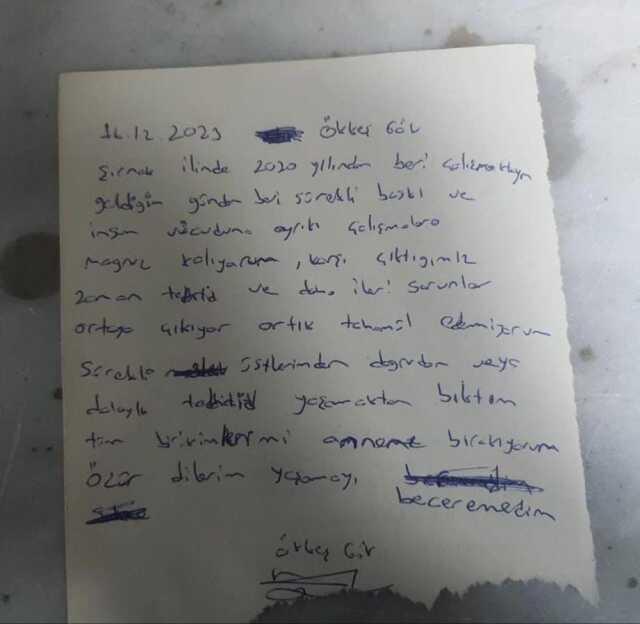 16.12.2023 Ökkeş Gök
Şırnak ilinde 2020 yılından beri çalışmaktayım
geldiğim günden beri sürekli baskı ve
insan vücuduna aykırı çalışmalara
maruz kalıyorum, karşı çıktığımız
zaman tehdit ve daha ileri sorunlar
ortaya çıkıyor artık tahamül edemiyorum
Sürekli üstlerimden doğrudan veya
dolaylı tehdid yaşamaktan bıktım
tüm birikimlerimi anneme bırakıyorum
Özür dilerim yaşamayı
beceremedim
Ökkeş Gök